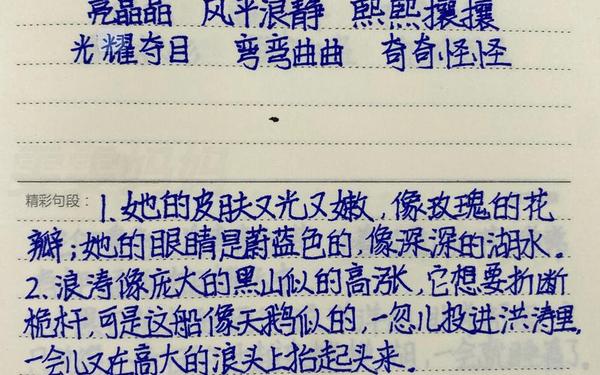 亮晶晶 风平浪静 熙熙攘攘
光耀夺目 弯弯曲曲 奇奇怪怪
精彩句段：1.她的皮肤又光又嫩,像玫瑰的花
瓣;她的眼睛是蔚蓝色的,像深深的湖水。
2.浪涛像庞大的黑山似的高涨,它想要折断
桅杆,可是这船像天鹅似的,一忽儿投进洪涛里,
一会儿又在高大的浪头上抬起头来。